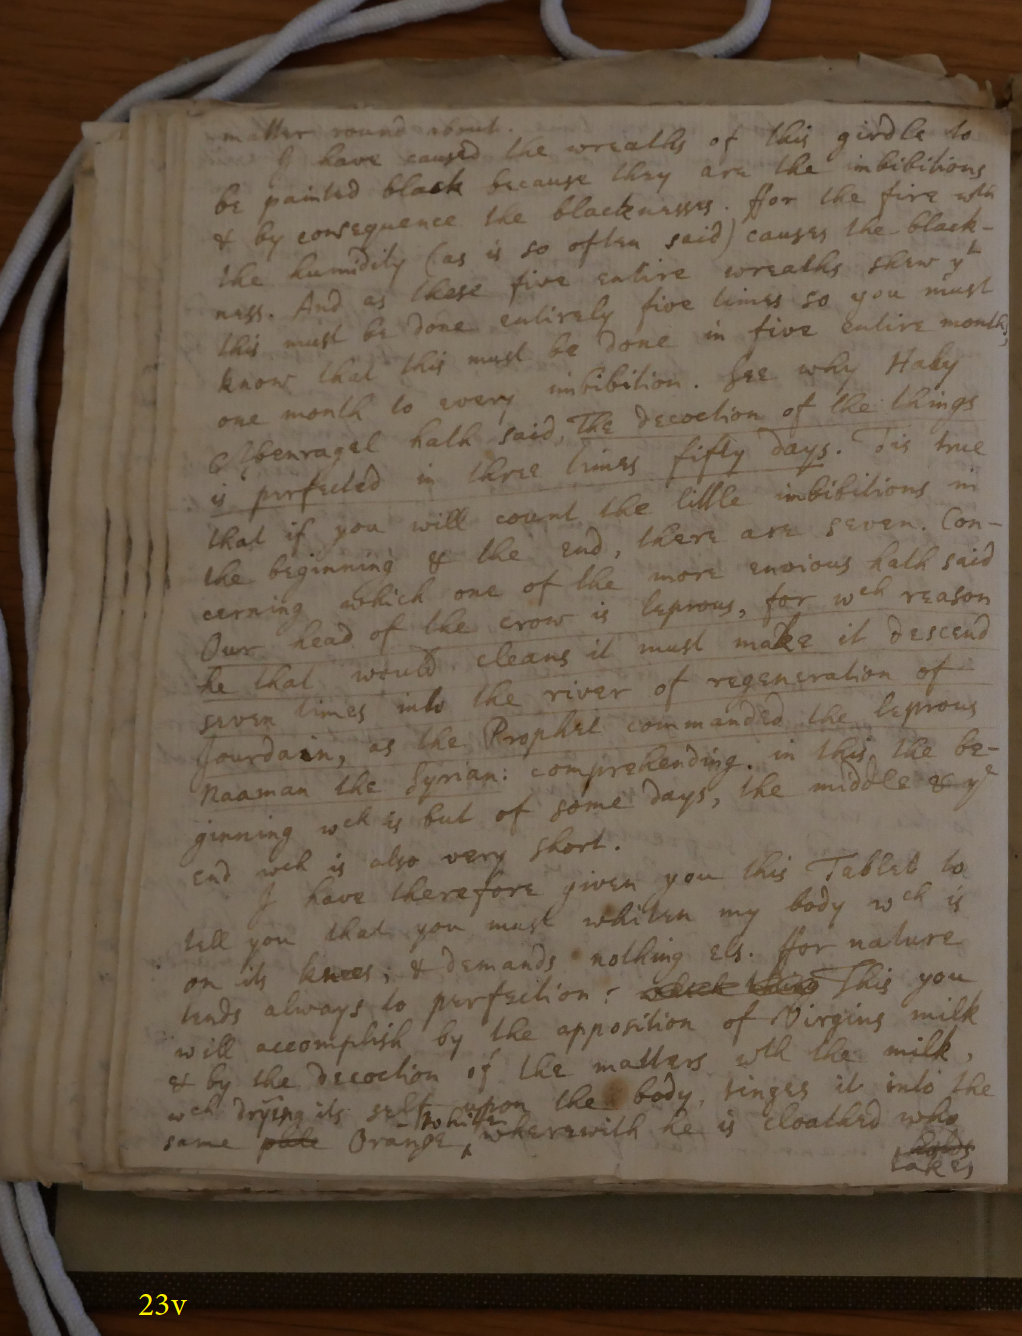 matter round about.
I have caused the wreaths of this girdle to
be painted black because they are the imbibitions
& by consequence the blacknesses. ffor the fire wth
the humidity (as is so often said) causes the black-
ness. And as these five entire wreaths shew yt
this must be done entirely five times so you must
know that this must be done in five entire months,
one month to every imbibition. See why Haly
Abenragel hath said, The decoction of the things
is perfected in three times fifty days. Tis true
that if you will count the little imbibitions in
the beginning & the end, there are seven. Con-
cerning which one of the more envious hath said
Our head of the crow is leprous, for wch reason
he that would cleans it must make it descend
seven times into the river of regeneration of
Jourdain, as the Prophet commanded the leprous
Naaman the Syrian: comprehending in this the be-
ginning wch is but of some days, the middle & ye
end wch is also very short.
I have therefore given you this Tablet to
tell you that you must whiten my body wch is
on its knees, & demands nothing els. ffor nature
tends always to perfection: which thing This you
will accomplish by the apposition of Virgins milk
& by the decoction of the matters wth the milk,
wch drying its self upon the body, tinges it into the
same pale Orange, white wherewith he is cloathed who
holds
takes
23v